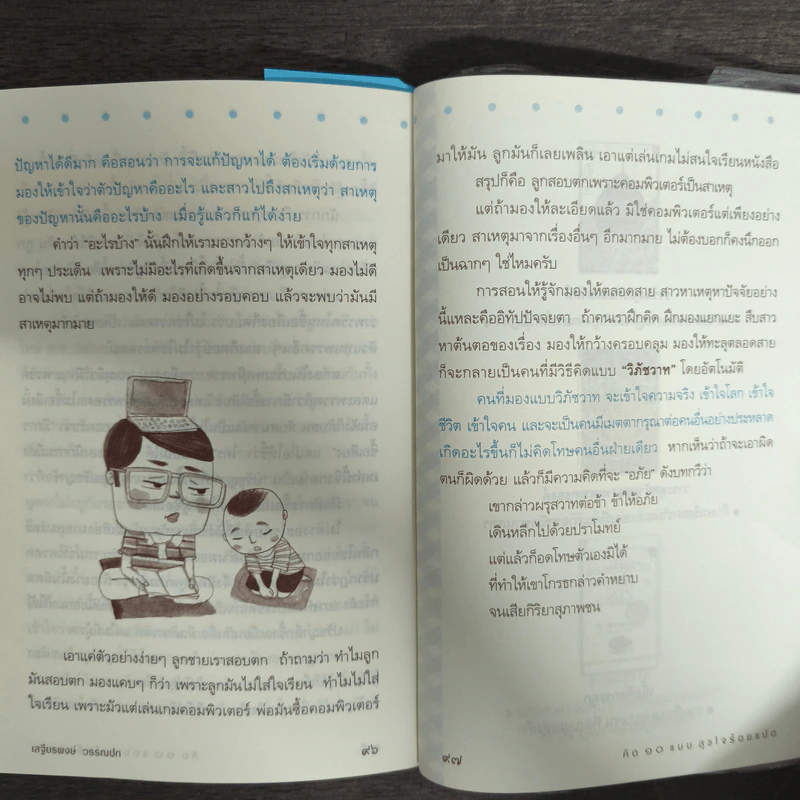 ปัญหาได้ดีมาก คือสอนว่า การจะแก้ปัญหาได้ ต้องเริ่มด้วยการ
มองให้เข้าใจว่าตัวปัญหาคืออะไร และสาวไปถึงสาเหตุว่า สาเหตุ
ของปัญหานั้นคืออะไรบ้าง เมื่อรู้แล้วก็แก้ได้ง่าย
คำว่า “อะไรบ้าง” นั้นฝึกให้เรามองกว้างๆ ให้เข้าใจทุกสาเหตุ
ทุกๆ ประเด็น เพราะไม่มีอะไรที่เกิดขึ้นจากสาเหตุเดียว มองไม่ดี
อาจไม่พบ แต่ถ้ามองให้ดี มองอย่างรอบคอบ แล้วจะพบว่ามันมี
สาเหตุมากมาย
เอาแค่ตัวอย่างง่ายๆ ลูกชายเราสอบตก ถ้าถามว่า ทำไมลูก
มันสอบตก มองแคบๆ ก็ว่า เพราะลูกมันไม่ใส่ใจเรียน ทำไมไม่ใส่
ใจเรียน เพราะมัวแต่เล่นเกมคอมพิวเตอร์ พ่อมันซื้อคอมพิวเตอร์
เสฐียรพงษ์ วรรณปก
๙๖
มาให้มัน ลูกมันก็เลยเพลิน เอาแต่เล่นเกมไม่สนใจเรียนหนังสือ
สรุปก็คือ ลูกสอบตกเพราะคอมพิวเตอร์เป็นสาเหตุ
แต่ถ้ามองให้ละเอียดแล้ว มิใช่คอมพิวเตอร์แต่เพียงอย่าง
เดียว สาเหตุมาจากเรื่องอื่นๆ อีกมากมาย ไม่ต้องบอกก็คงนึกออก
เป็นฉากๆ ใช่ไหมครับ
การสอนให้รู้จักมองให้ตลอดสาย สาวหาเหตุหาปัจจัยอย่าง
นี้แหละคืออิทัปปัจจยตา ถ้าคนเราฝึกคิด ฝึกมองแยกแยะ สืบสาว
หาต้นตอของเรื่อง มองให้กว้างครอบคลุม มองให้ทะลุตลอดสาย
ก็จะกลายเป็นคนที่มีวิธีคิดแบบ “วิภัชวาท” โดยอัตโนมัติ
คนที่มองแบบวิภัชวาท จะเข้าใจความจริง เข้าใจโลก เข้าใจ
ชีวิต เข้าใจคน และจะเป็นคนมีเมตตากรุณาต่อคนอื่นอย่างประหลาด
เกิดอะไรขึ้นก็ไม่คิดโทษคนอื่นฝ่ายเดียว หากเห็นว่าถ้าจะเอาผิด
ตนก็ผิดด้วย แล้วก็มีความคิดที่จะ “อภัย” ดังบทกวีว่า
เขากล่าวผรุสวาทต่อข้า ข้าให้อภัย
เดินหลีกไปด้วยปราโมทย์
แต่แล้วก็อดโทษตัวเองมิได้
ที่ทำให้เขาโกรธกล่าวคำหยาบ
จนเสียกิริยาสุภาพชน
๙๗
คิด ๑๐ แบบ สุดใจร้อยแปด